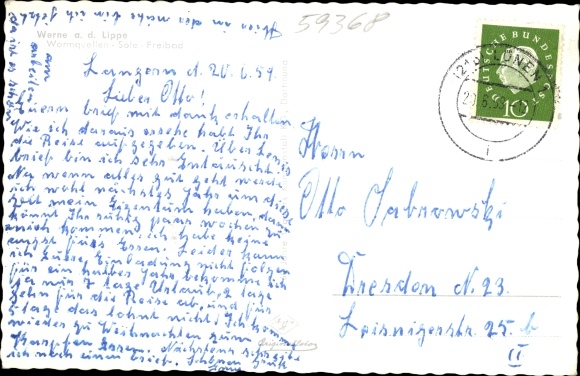 59368
Hier in der nähe bin ich jetzt
am
arbeiten
Werne a. d. Lippe
Warmquellen - Sole - Freibad
Lanzern d. 20.6.59
Lieber Otto!
Euern brief mit dank erhalten
Wie ich daraus ersehe habt Ihr
die Reise aufgegeben. Über
brief bin ich sehr Entäuscht.
Na wenn alles gut geht werde
ich wohl nächstes Jahr um diese
Zeit mein Eigentum haben, dann
könnt Ihr ruhig paar wochen zu
mich kommen, ich habe keine
angst für's Essen. Leider kann
ich Eurer Einladung nicht folgen
für ein halbes Jahr bekomme ich
ja nur 7 tage Urlaub, 2 tage
gehn für die Reise ab, und für
5 tage das lohnt nicht! Ich komm
wieder zu Weihnachten zum
Karpfen Essen. Nächstens schreibe
ich noch einen brief. Schönen Gruß
Herrn
Otto Sabrowski
Dresden N. 23.
Leisnigerstr. 25. b
II
DEUTSCHE BUNDESPOST
10
LÜNEN